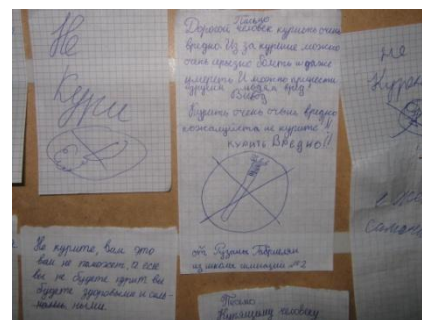 Не
Кури
Письмо
Дорогой человек курить очень
вредно. Из за курения можно
очень серьезно болеть и даже
умереть. И можно принести
другим людям вред
Вывод
Курить очень очень вредно
пожалуйста не курите!!
Курить Вредно!!
от Рузаны
из школы гимназии №2
Не курите, вам это
вам не поможет, а если
вы не будете курить вы
будете здоровыми и силь-
ными.
не
Письмо
Курящему человеку